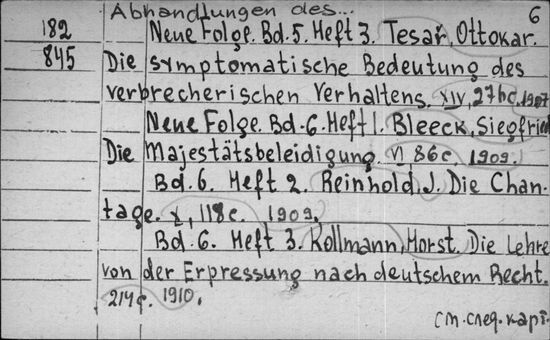 Abhandlungen des... 6
182 Neue Folge. Bd. 5. Heft 3. Tesař, Ottokar.
845 Die symptomatische Bedeutung des
verbrecherischen Verhaltens. XIV, 275 с. 1907
Neue Folge. Bd. 6. Heft 1. Bleeck, Siegfried
Die Majestätsbeleidigung. VI 86 с. 1909.
Bd. 6. Heft 2. Reinhold, J. Die Chan-
tage. X, 118 с. 1909.
Bd. 6. Heft 3. Kollmann, Horst. Die Lehre
von der Erpressung nach deutschem Recht.
214 с. 1910.
См. след. карт.